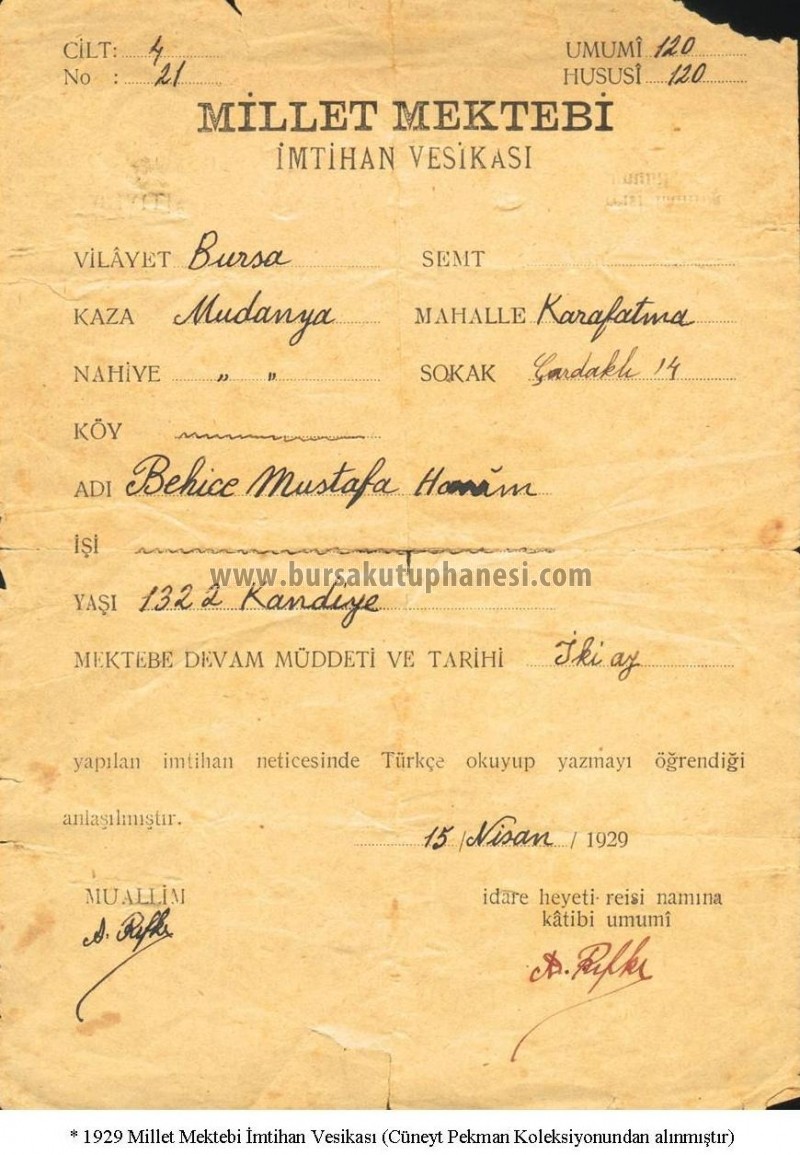 CİLT: 4 UMUMÎ 120
No : 21 HUSUSÎ 120
MİLLET MEKTEBİ
İMTİHAN VESİKASI
VİLÂYET Bursa SEMT
KAZA Mudanya MAHALLE Karafatma
NAHİYE " " SOKAK Çardaklı 14
KÖY
ADI Behice Mustafa Hanım
İŞİ
www.bursakutuphanesi.com
YAŞI 1322 Kandiye
MEKTEBE DEVAM MÜDDETİ VE TARİHİ İki ay
yapılan imtihan neticesinde Türkçe okuyup yazmayı öğrendiği
anlaşılmıştır.
15 / Nisan / 1929
MUALLİM idare heyeti reisi namına
kâtibi umumî
A. Rıfkı
A. Rıfkı
* 1929 Millet Mektebi İmtihan Vesikası (Cüneyt Pekman Koleksiyonundan alınmıştır)